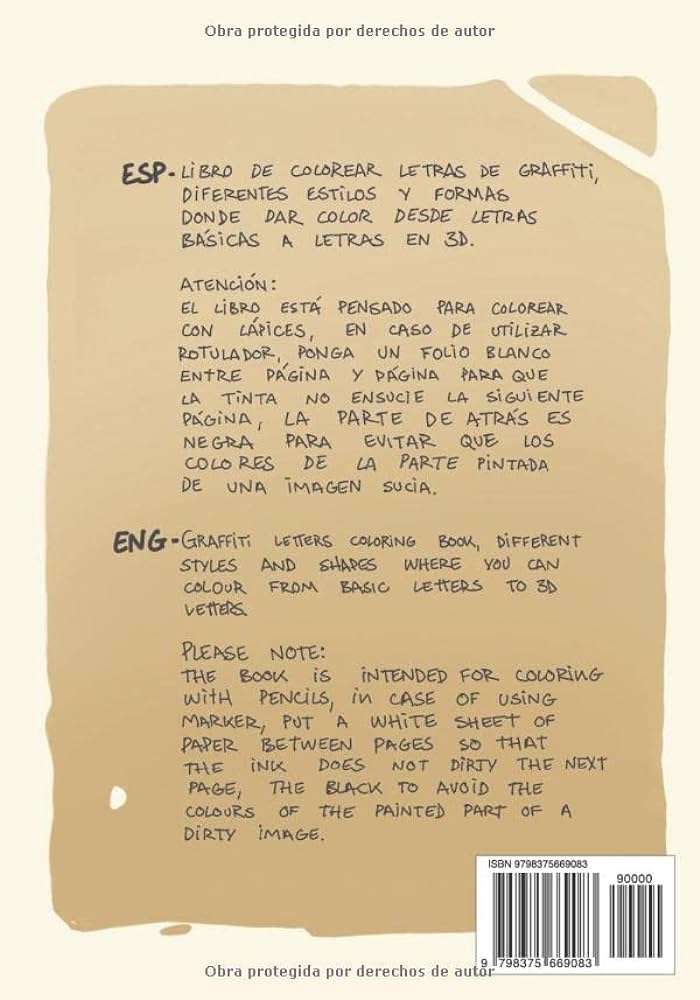 Obra protegida por derechos de autor
ESP- LIBRO DE COLOREAR LETRAS DE GRAFFITI,
DIFERENTES ESTILOS Y FORMAS
DONDE DAR COLOR DESDE LETRAS
BÁSICAS A LETRAS EN 3D.
ATENCIÓN:
EL LIBRO ESTÁ PENSADO PARA COLOREAR
CON LÁPICES, EN CASO DE UTILIZAR
ROTULADOR, PONGA UN FOLIO BLANCO
ENTRE PÁGINA Y PÁGINA PARA QUE
LA TINTA NO ENSUCIE LA SIGUIENTE
PÁGINA, LA PARTE DE ATRÁS ES
NEGRA PARA EVITAR QUE LOS
COLORES DE LA PARTE PINTADA
DE UNA IMAGEN SUCIA.
ENG- GRAFFITI LETTERS COLORING BOOK, DIFFERENT
STYLES AND SHAPES WHERE YOU CAN
COLOUR FROM BASIC LETTERS TO 3D
LETTERS.
PLEASE NOTE:
THE BOOK IS INTENDED FOR COLORING
WITH PENCILS, IN CASE OF USING
MARKER, PUT A WHITE SHEET OF
PAPER BETWEEN PAGES SO THAT
THE INK DOES NOT DIRTY THE NEXT
PAGE, THE BLACK TO AVOID THE
COLOURS OF THE PAINTED PART OF A
DIRTY IMAGE.
ISBN 9798375669083
90000
9 798375 669083
Obra protegida por derechos de autor